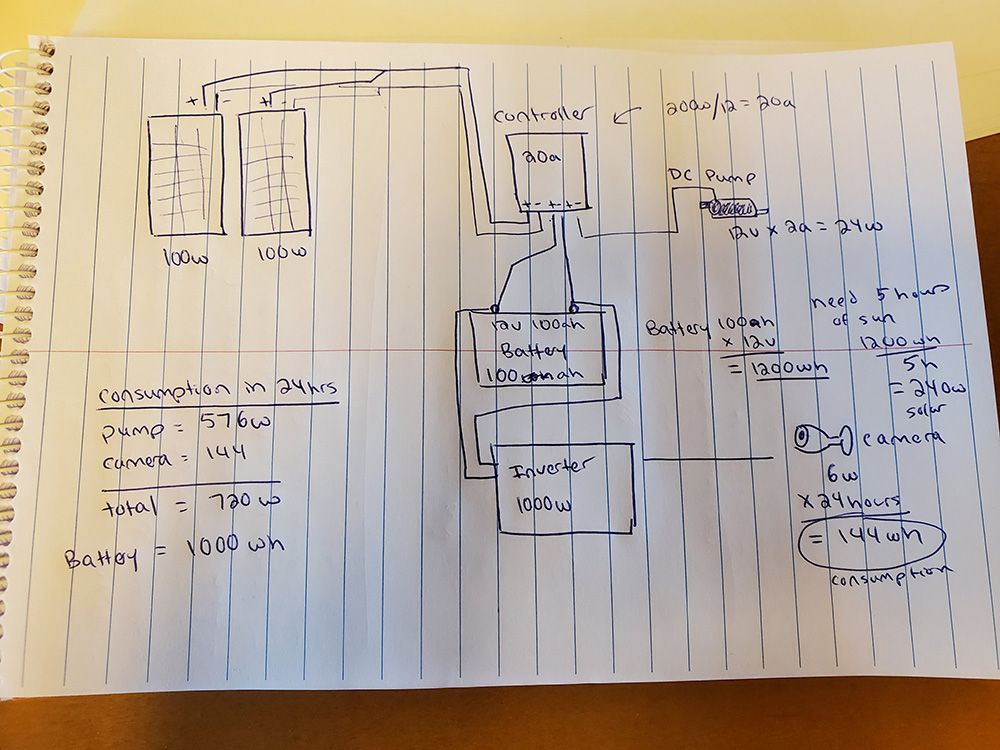 + - + -
100w 100w
controller
20a
+ - + - + -
200w/12 = 20a
DC Pump
12v x 2a = 24w
12v 100ah
Battery
100 ah
Battery 100ah
x 12v
= 1200wh
need 5 hours
of sun
1200wh
5h
= 240w
solar
Inverter
1000w
camera
6w
x 24 hours
= 144wh
consumption
consumption in 24hrs
pump = 576w
camera = 144
total = 720w
Battery = 1000 wh